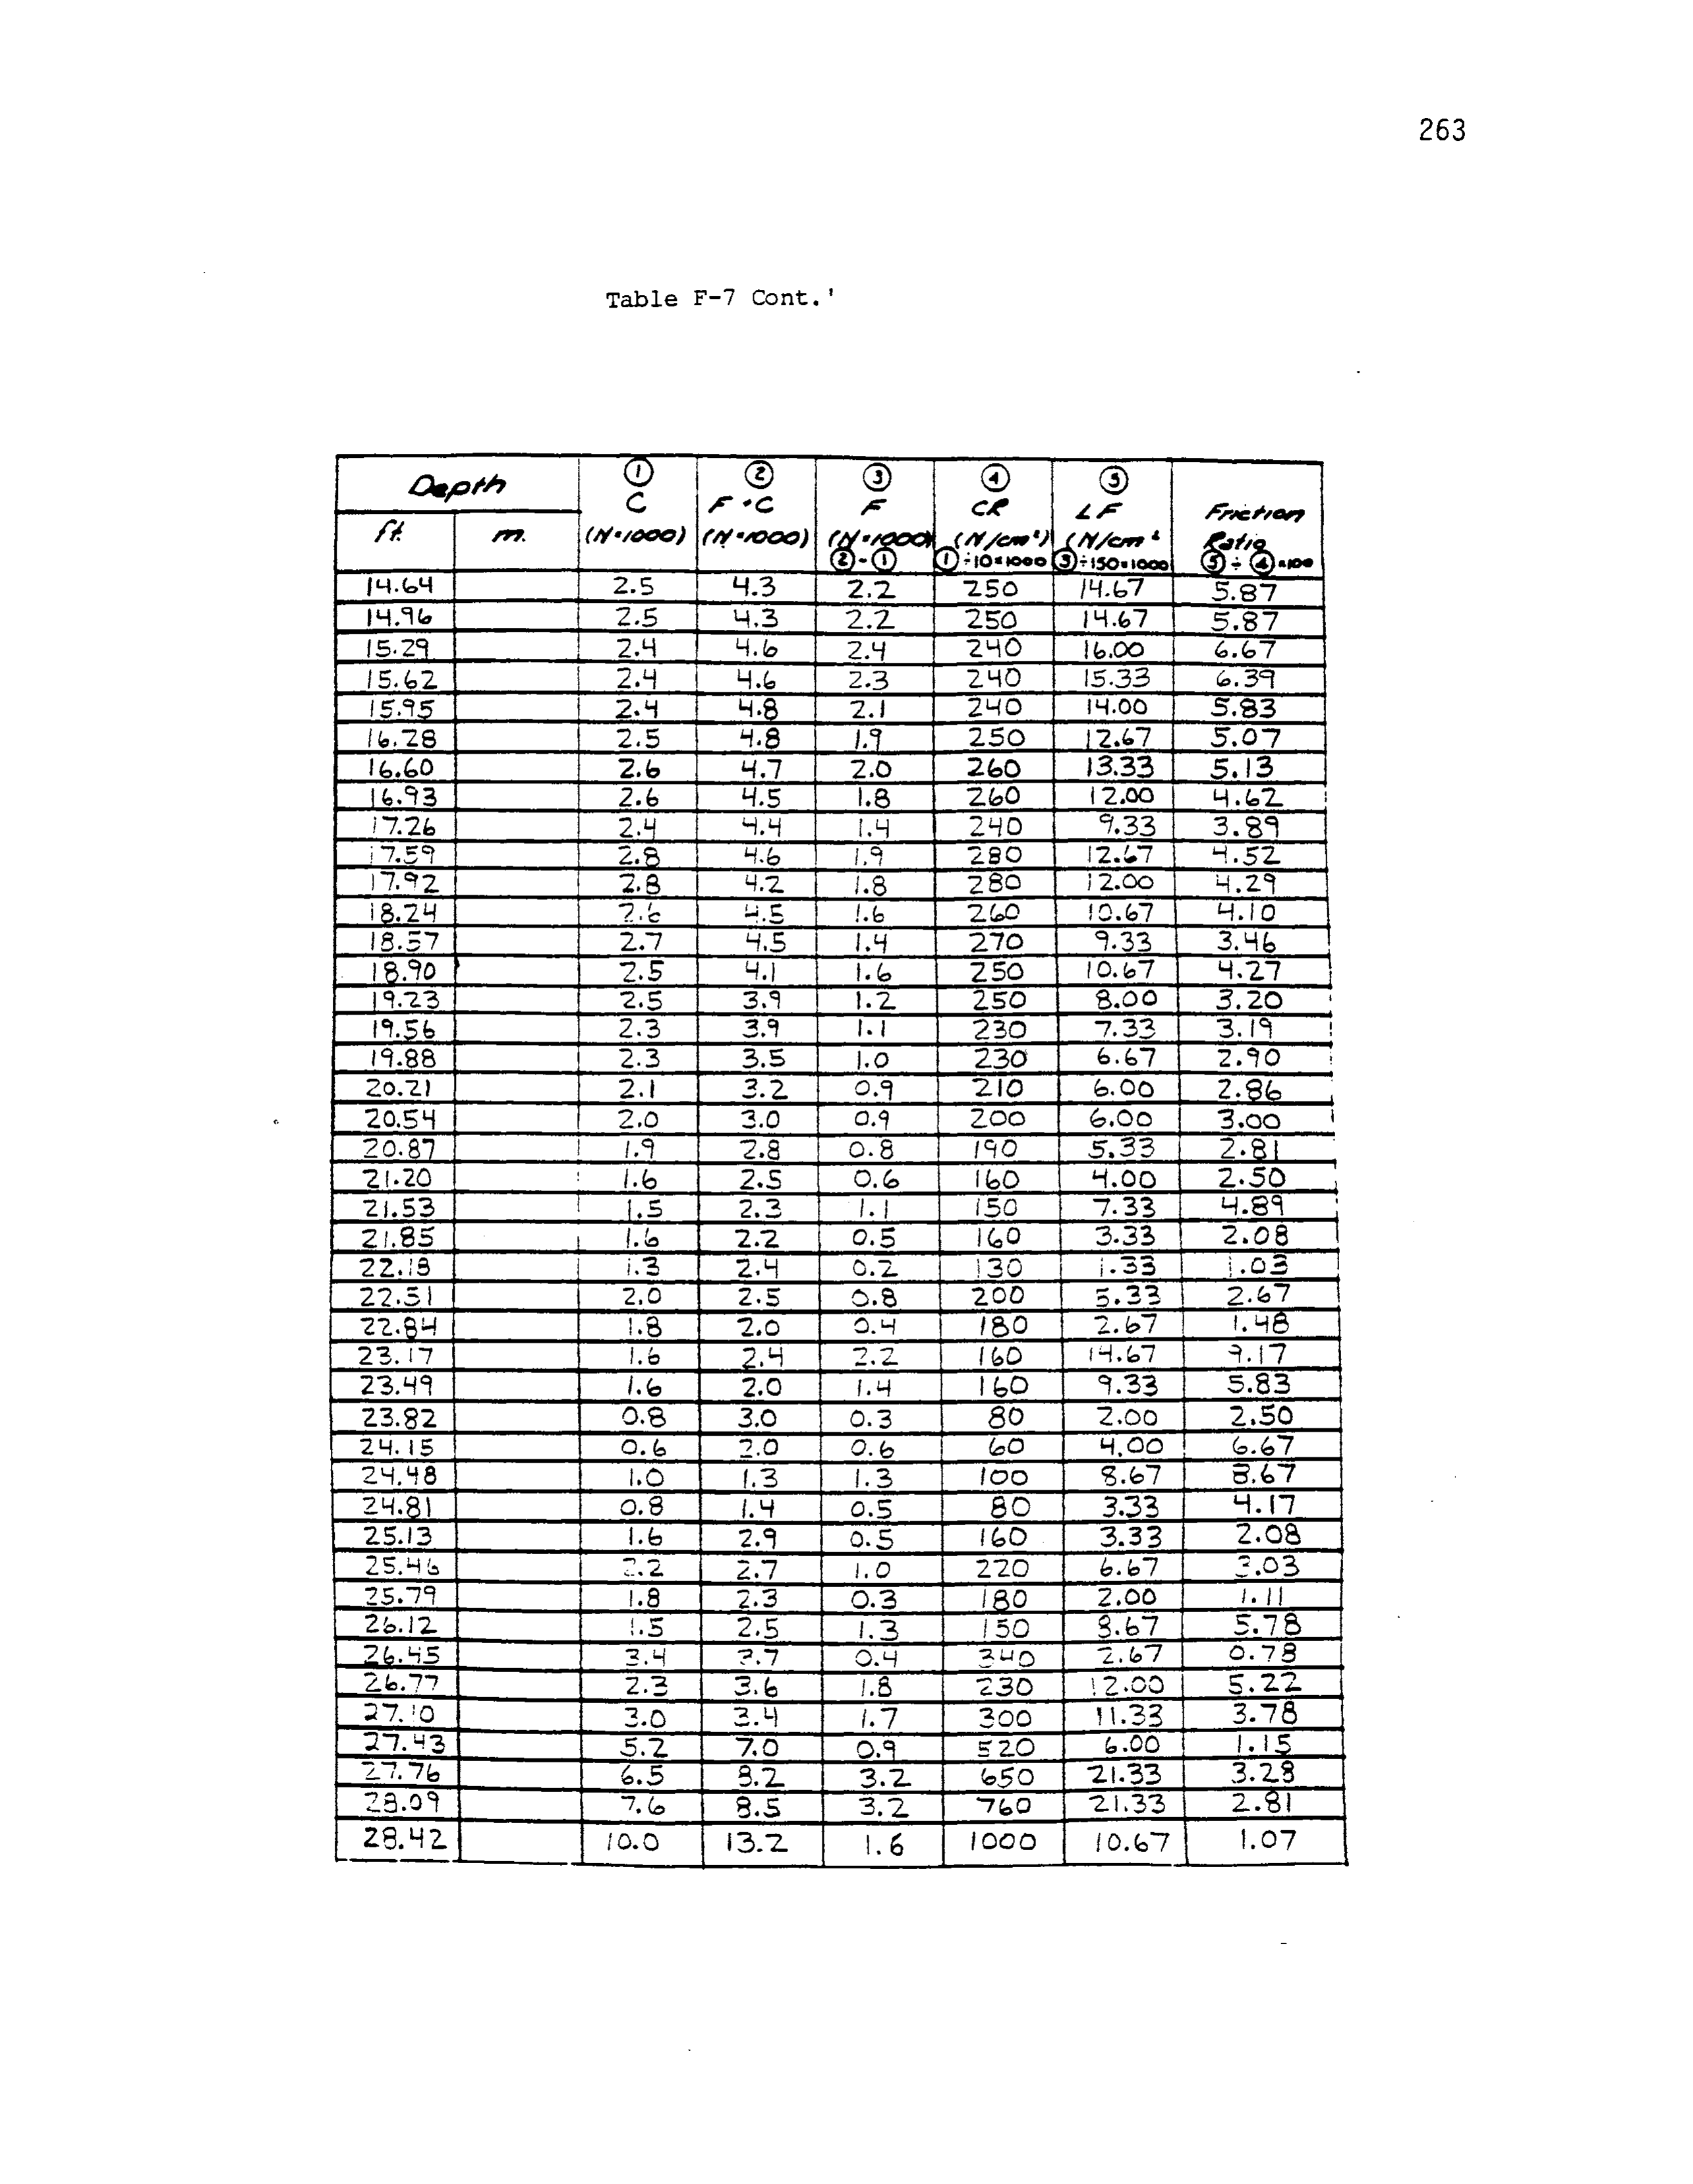 263
Table F-7 Cont.'
Depth ① ② ③ ④ ⑤
C F+C F CR LF Friction
ft. m. (N×1000) (N×1000) (N×1000) (N/cm²) (N/cm² Ratio
②-① ①÷10×1000 ③÷150×1000 ⑤÷④×100
14.64 2.5 4.3 2.2 250 14.67 5.87
14.96 2.5 4.3 2.2 250 14.67 5.87
15.29 2.4 4.6 2.4 240 16.00 6.67
15.62 2.4 4.6 2.3 240 15.33 6.39
15.95 2.4 4.8 2.1 240 14.00 5.83
16.28 2.5 4.8 1.9 250 12.67 5.07
16.60 2.6 4.7 2.0 260 13.33 5.13
16.93 2.6 4.5 1.8 260 12.00 4.62
17.26 2.4 4.4 1.4 240 9.33 3.89
17.59 2.8 4.6 1.9 280 12.67 4.52
17.92 2.8 4.2 1.8 280 12.00 4.29
18.24 2.6 4.5 1.6 260 10.67 4.10
18.57 2.7 4.5 1.4 270 9.33 3.46
18.90 2.5 4.1 1.6 250 10.67 4.27
19.23 2.5 3.9 1.2 250 8.00 3.20
19.56 2.3 3.9 1.1 230 7.33 3.19
19.88 2.3 3.5 1.0 230 6.67 2.90
20.21 2.1 3.2 0.9 210 6.00 2.86
20.54 2.0 3.0 0.9 200 6.00 3.00
20.87 1.9 2.8 0.8 190 5.33 2.81
21.20 1.6 2.5 0.6 160 4.00 2.50
21.53 1.5 2.3 1.1 150 7.33 4.89
21.85 1.6 2.2 0.5 160 3.33 2.08
22.18 1.3 2.4 0.2 130 1.33 1.03
22.51 2.0 2.5 0.8 200 5.33 2.67
22.84 1.8 2.0 0.4 180 2.67 1.48
23.17 1.6 2.4 2.2 160 14.67 9.17
23.49 1.6 2.0 1.4 160 9.33 5.83
23.82 0.8 3.0 0.3 80 2.00 2.50
24.15 0.6 2.0 0.6 60 4.00 6.67
24.48 1.0 1.3 1.3 100 8.67 8.67
24.81 0.8 1.4 0.5 80 3.33 4.17
25.13 1.6 2.9 0.5 160 3.33 2.08
25.46 2.2 2.7 1.0 220 6.67 3.03
25.79 1.8 2.3 0.3 180 2.00 1.11
26.12 1.5 2.5 1.3 150 8.67 5.78
26.45 3.4 3.7 0.4 340 2.67 0.78
26.77 2.3 3.6 1.8 230 12.00 5.22
27.10 3.0 3.4 1.7 300 11.33 3.78
27.43 5.2 7.0 0.9 520 6.00 1.15
27.76 6.5 8.2 3.2 650 21.33 3.28
28.09 7.6 8.5 3.2 760 21.33 2.81
28.42 10.0 13.2 1.6 1000 10.67 1.07